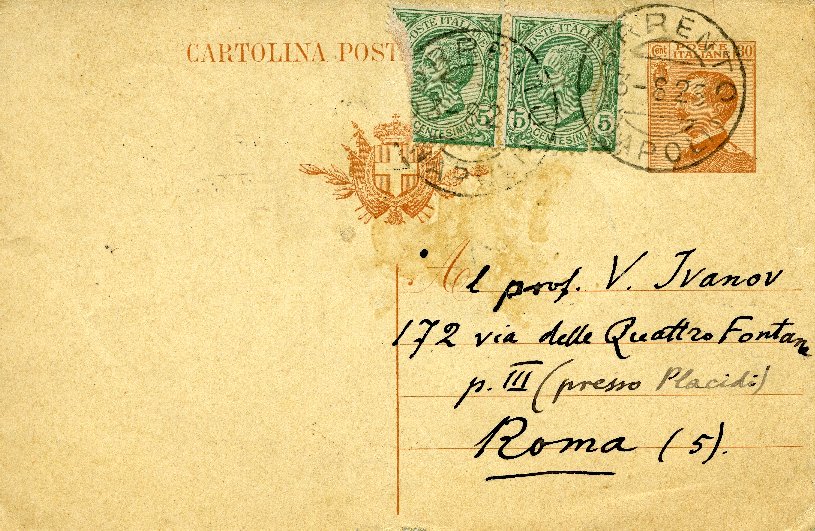 CARTOLINA POST
POSTE ITALIANE
5
CENTESIMI
POSTE ITALIANE
5 5
CENTESIMI
POSTE
ITALIANE
30
Al prof. V. Ivanov
172 via delle Quattro Fontane
p. III (presso Placidi)
Roma (5).